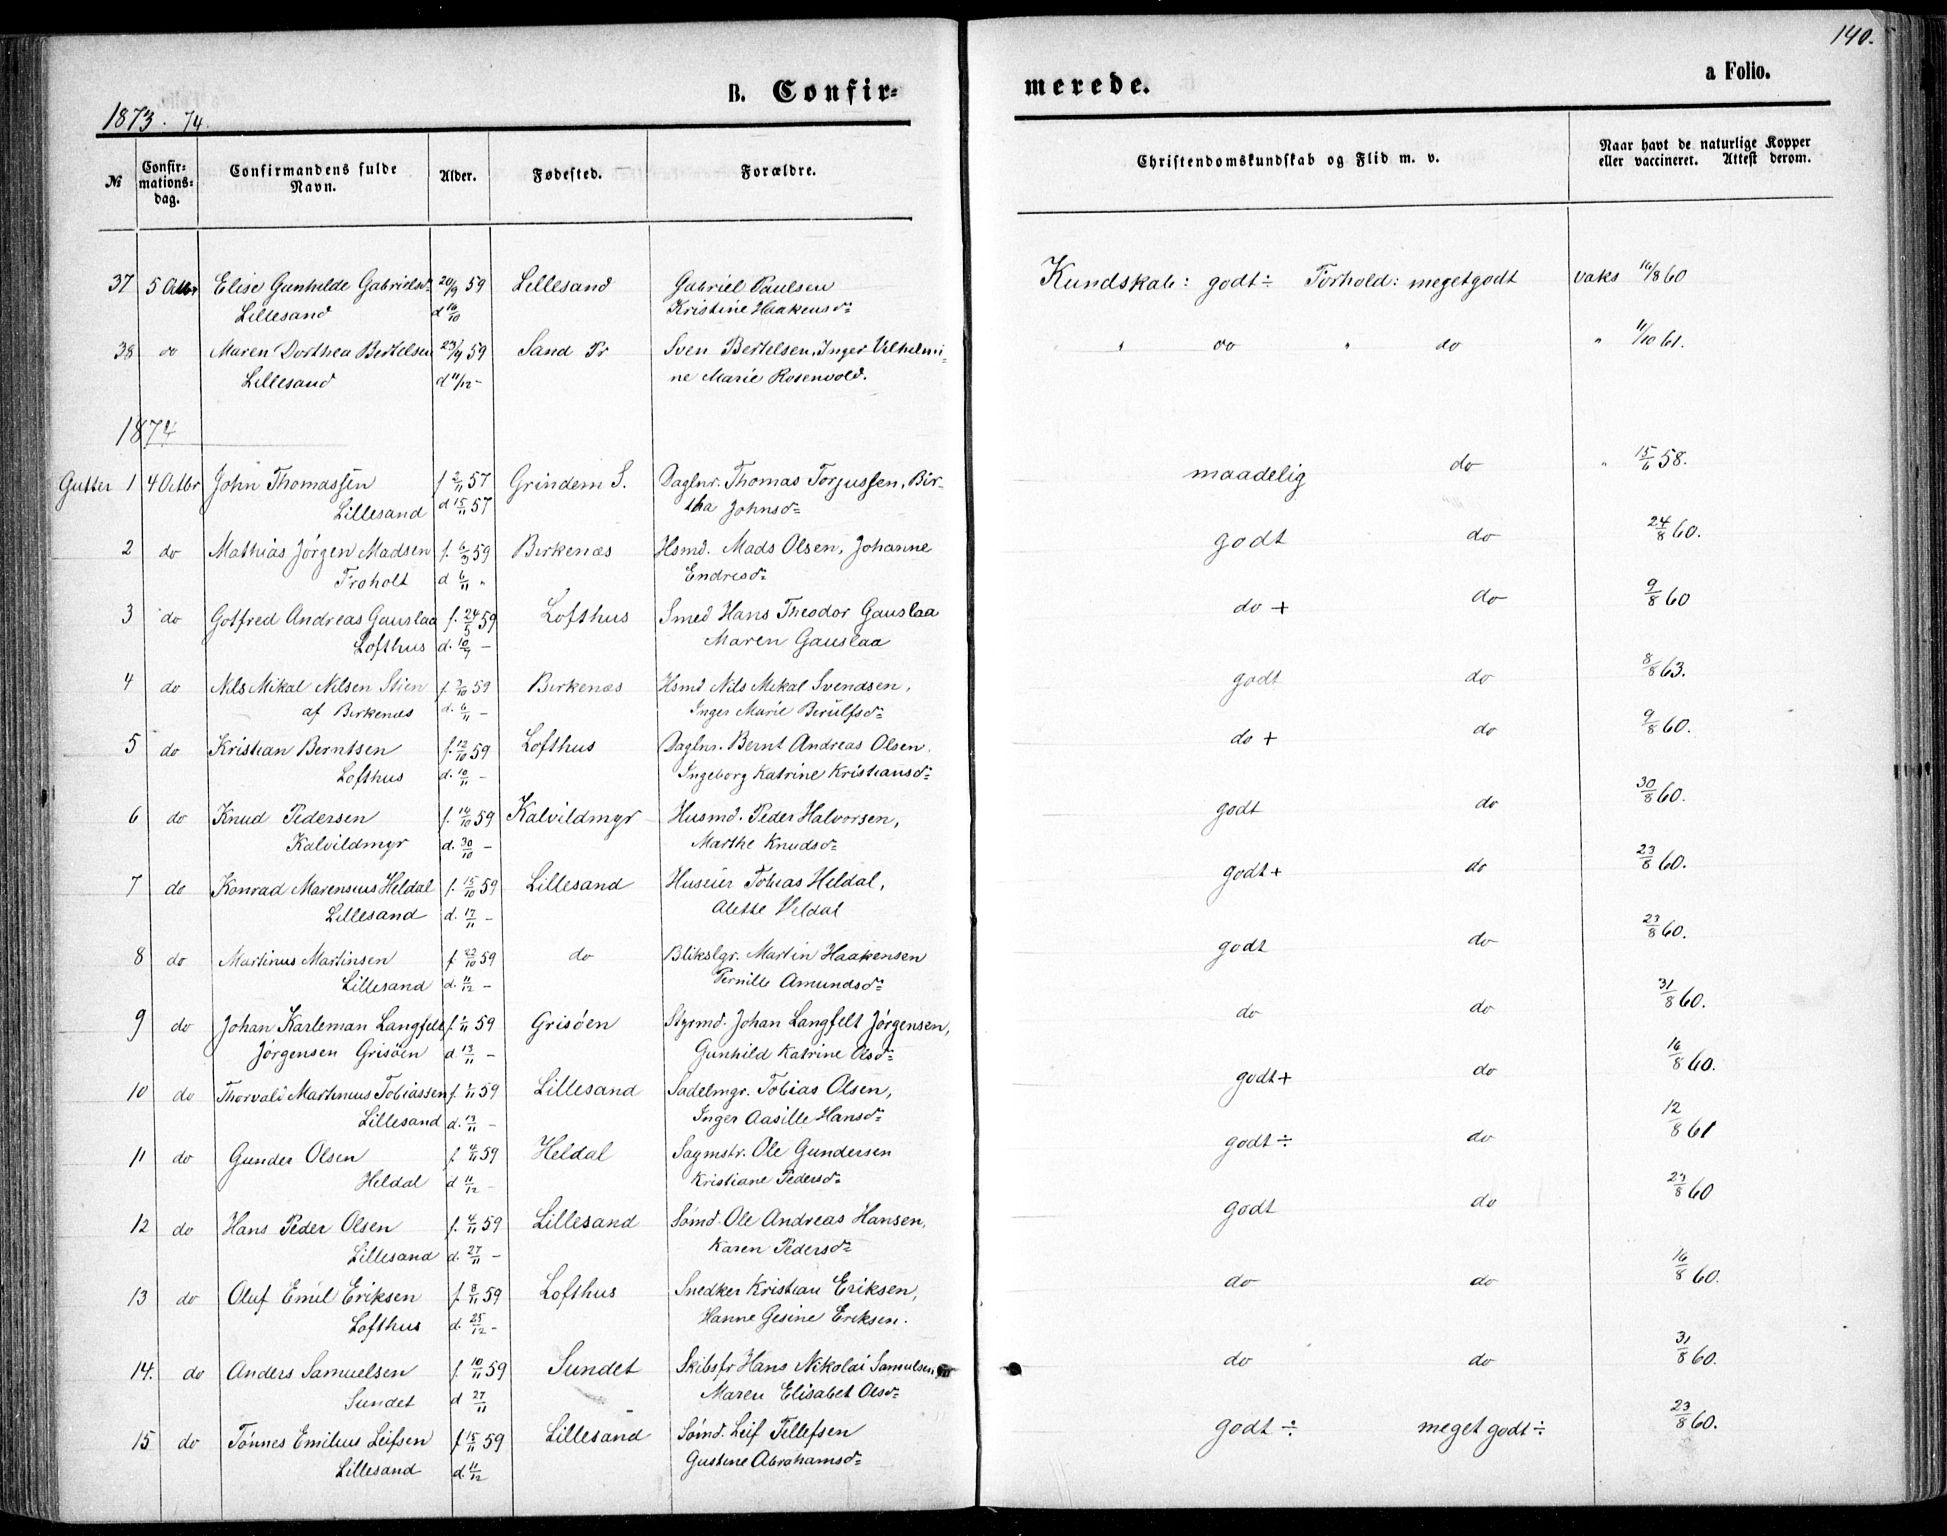 140.
B. Confir-
merede.
a Folio.
1873. 74.
№ Confir-mations-dag. Confirmandens fulde Navn. Alder. Fødested. Forældre. Christendomskundskab og Flid m. v. Naar havt de naturlige Kopper eller vaccineret. Attest derom.
37 5 Octbr Elise Gunhilde Gabrielsd= 20/9 59 Lillesand Gabriel Paulsen Kundskab: godt ÷ Forhold: megetgodt vaks 16/8 60
Lillesand d 16/10 Kristine Haakensd=
38 do Maren Dorthea Bertelsen 23/9 59 Sand Fr Sven Bertelsen, Inger Vilhelmi- " do " do " 11/10 61.
Lillesand d 11/12 - ne Marie Rosenvold.
1874
Gutter 1 4 Octbr John Thomassen f 2/11 57 Grindem S. Daglnr. Thomas Torjussen, Bir- maadelig do " 15/6 58.
Lillesand d 15/11 57 tha Johnsd=
2 do Mathias Jørgen Madsen f. 6/9 59 Birkenæs Hsmd. Mads Olsen, Johanne godt do 24/8 60.
Froholt d 6/11 " Endresd=
3 do Gotfred Andreas Gauslaa f. 24/5 59 Lofthus Smed Hans Theodor Gauslaa do + do 9/8 60
Lofthus d. 10/7 - Maren Gauslaa
4 do Nils Mikal Nilsen Stien f. 3/10 59 Birkenæs Hsmd Nils Mikal Svendsen, godt do 8/8 63.
af Birkenæs d. 6/11 - Inger Marie Berulfsd=
5 do Kristian Berntsen f. 12/10 59 Lofthus Daglnr. Bernt Andreas Olsen. do + do 9/8 60.
Lofthus d. 10/11 - Ingeborg Katrine Kristiansd=
6 do Knud Pedersen f. 14/10 59 Kalvildmyr Husmd. Peder Halvorsen, godt do 30/8 60.
Kalvildmyr d. 30/10 - Marthe Knudsd=
7 do Konrad Marensius Heldal f. 15/10 59 Lillesand Huseier Tobias Heldal, godt + do 23/8 60.
Lillesand d. 17/11 - Alette Heldal
8 do Martinus Martinsen f 22/10 59 do Blikslgr. Martin Haakensen godt do 23/8 60.
Lillesand d. 11/12 - Pernille Amundsd=
9 do Johan Karleman Langfelt f. 1/11 59 Grisøen Styrmd. Johan Langfelt Jørgensen, do do 31/8 60.
Jørgensen Grisøen d 13/11 - Gunhild Katrine Olsd=
10 do Thorvald Martinius Tobiassen f. 1/11 59 Lillesand Sadelmgr. Tobias Olsen, godt + do 16/8 60.
Lillesand d. 13/11 - Inger Aasille Hansd=
11 do Gunder Olsen f 4/11 59 Heldal Sagmstr. Ole Gundersen godt ÷ do 12/8 61
Heldal d 11/12 - Kristiane Pedersd=
12 do Hans Peder Olsen f. 4/11 59 Lillesand Sømd. Ole Andreas Hansen, godt do 23/8 60
Lillesand d. 27/11 - Karen Pedersd=
13 do Oluf Emil Eriksen f. 8/11 59 Lofthus Snedker Kristian Eriksen, do do 16/8 60.
Lofthus d. 25/12 - Hanne Gesine Eriksen.
14. do Anders Samuelsen f. 10/11 59 Sundet Skibsfr Hans Nikolai Samuelsen do do 31/8 60.
Sundet d 27/11 Maren Elisabet Olsd=
15 do Tønnes Emilius Leifsen f 15/11 59 Lillesand Sømd. Leif Tellefsen godt ÷ meget godt ÷ 23/8 60.
Lillesand d. 11/12 Gustine Abrahamsd=